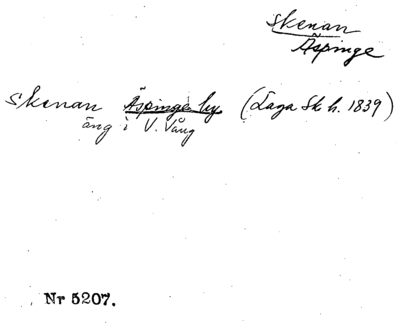 Skenan
Äspinge
Skenan Äspinge by (Laga Sk h. 1839)
äng i V. Vång
Nr 5207.